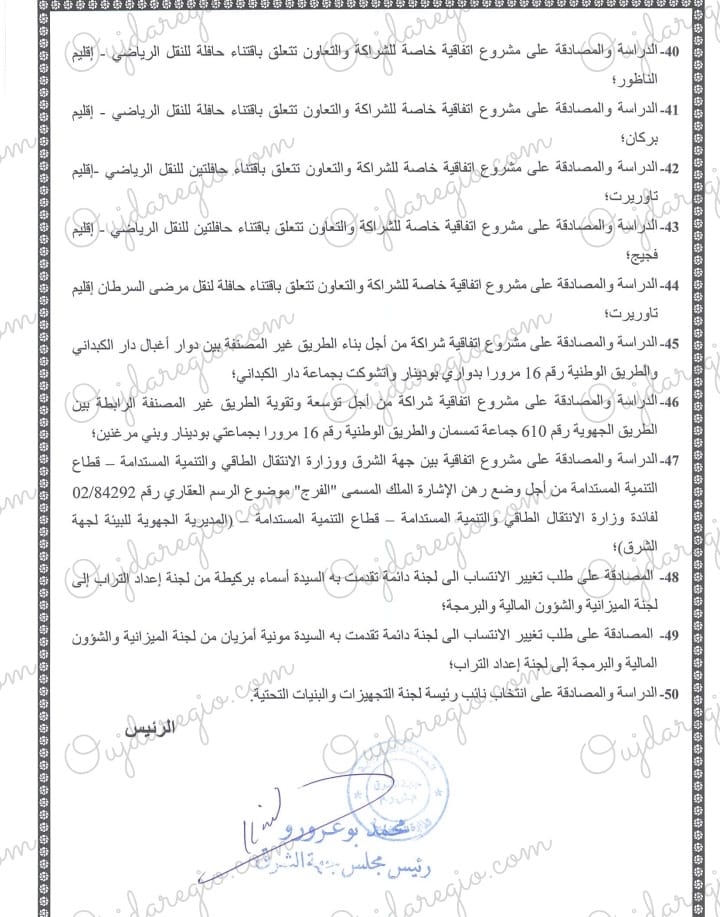 40- الدراسة والمصادقة على مشروع اتفاقية خاصة للشراكة والتعاون تتعلق باقتناء حافلة للنقل الرياضي - إقليم
الناظور؛
41- الدراسة والمصادقة على مشروع اتفاقية خاصة للشراكة والتعاون تتعلق باقتناء حافلة للنقل الرياضي - إقليم
بركان؛
42- الدراسة والمصادقة على مشروع اتفاقية خاصة للشراكة والتعاون تتعلق باقتناء حافلتين للنقل الرياضي -إقليم
تاوريرت؛
43- الدراسة والمصادقة على مشروع اتفاقية خاصة للشراكة والتعاون تتعلق باقتناء حافلتين للنقل الرياضي - إقليم
فجيج؛
44- الدراسة والمصادقة على مشروع اتفاقية خاصة للشراكة والتعاون تتعلق باقتناء حافلة لنقل مرضى السرطان إقليم
تاوريرت؛
45- الدراسة والمصادقة على مشروع اتفاقية شراكة من أجل بناء الطريق غير المصنفة بين دوار أغبال دار الكبداني
والطريق الوطنية رقم 16 مرورا بدواري بودينار واتشوكت بجماعة دار الكبداني؛
46- الدراسة والمصادقة على مشروع اتفاقية شراكة من أجل توسعة وتقوية الطريق غير المصنفة الرابطة بين
الطريق الجهوية رقم 610 جماعة تمسمان والطريق الوطنية رقم 16 مرورا بجماعتي بودينار وبني مرغنين؛
47- الدراسة والمصادقة على مشروع اتفاقية بين جهة الشرق ووزارة الانتقال الطاقي والتنمية المستدامة – قطاع
التنمية المستدامة من أجل وضع رهن الإشارة الملك المسمى "الفرج" موضوع الرسم العقاري رقم 02/84292
لفائدة وزارة الانتقال الطاقي والتنمية المستدامة – قطاع التنمية المستدامة – (المديرية الجهوية للبيئة لجهة
الشرق)؛
48- المصادقة على طلب تغيير الانتساب الى لجنة دائمة تقدمت به السيدة أسماء بركيطة من لجنة إعداد التراب إلى
لجنة الميزانية والشؤون المالية والبرمجة؛
49- المصادقة على طلب تغيير الانتساب الى لجنة دائمة تقدمت به السيدة مونية أمزيان من لجنة الميزانية والشؤون
المالية والبرمجة إلى لجنة إعداد التراب؛
50- الدراسة والمصادقة على انتخاب نائب رئيسة لجنة التجهيزات والبنيات التحتية.
الرئيس
محمد بوعرورو
رئيس مجلس جهة الشرق
Oujdaregio.com